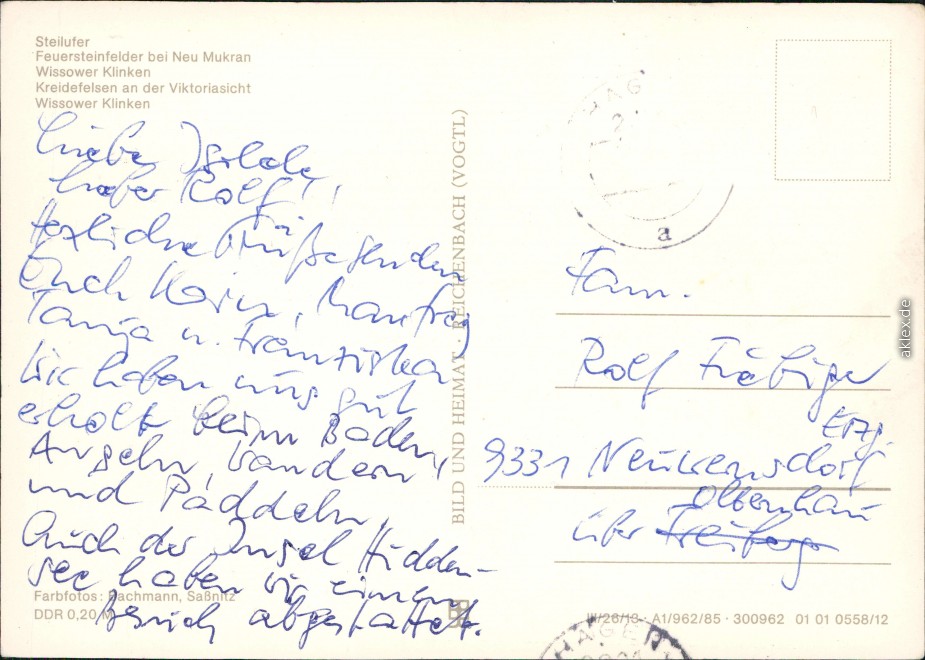 Steilufer
Feuersteinfelder bei Neu Mukran
Wissower Klinken
Kreidefelsen an der Viktoriasicht
Wissower Klinken
Liebe Isolde,
lieber Rolf!
Herzliche Grüße senden
Euch Karin, Manfred
Tanja u. Franziska
Wir haben uns gut
erholt beim Baden,
Angeln, Wandern
und Paddeln.
Auch der Insel Hidden-
see haben wir einen
Besuch abgestattet.
Farbfotos: Bachmann, Saßnitz
DDR 0,20 M
BILD UND HEIMAT · REICHENBACH (VOGTL)
HAG
a
Fam.
Rolf Fiebiger
9331 Neuwernsdorf Erzg.
über Freiberg Olbernhau
III/26/13 · A1/962/85 · 300962 01 01 0558/12
HAGEN
aklex.de